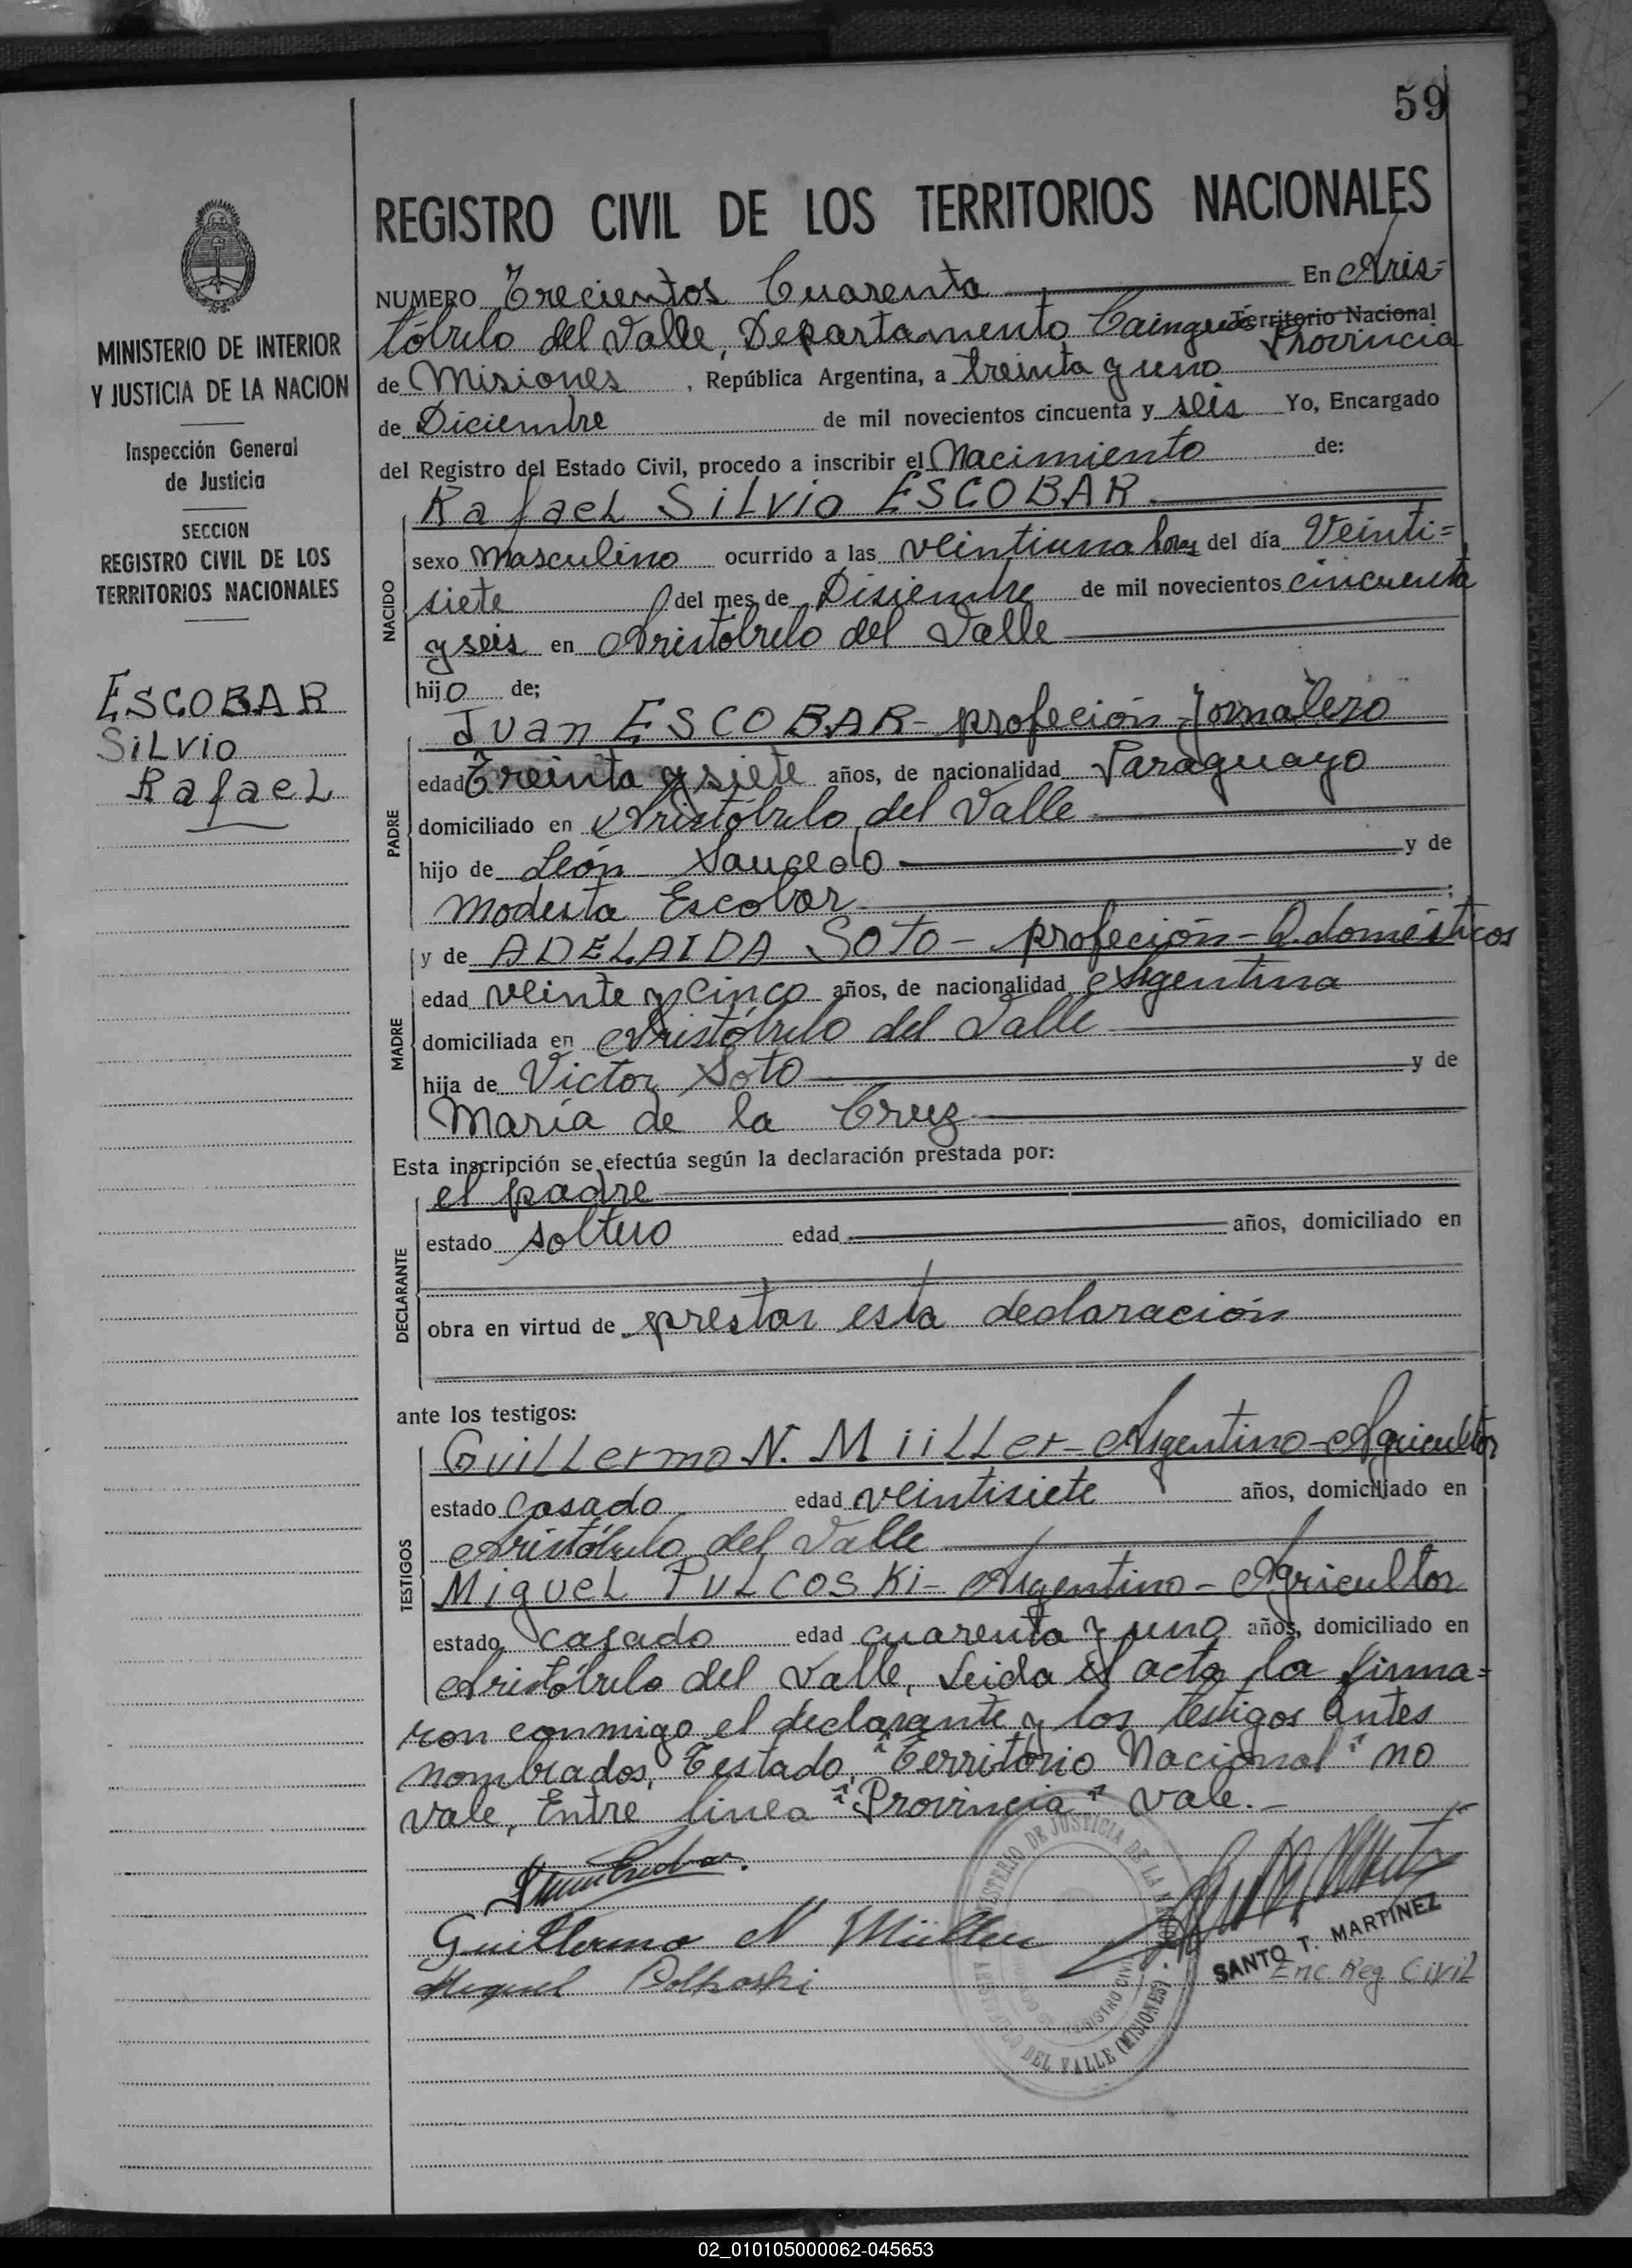 59
REGISTRO CIVIL DE LOS TERRITORIOS NACIONALES
MINISTERIO DE INTERIOR
Y JUSTICIA DE LA NACION
Inspección General
de Justicia
SECCION
REGISTRO CIVIL DE LOS
TERRITORIOS NACIONALES
ESCOBAR
SiLVio
RafaeL
NUMERO Trecientos Cuarenta En Aris=
tóbulo del Valle, Departamento Cainguás Territorio Nacional Provincia
de Misiones, República Argentina, a treinta y uno
de Diciembre de mil novecientos cincuenta y seis Yo, Encargado
del Registro del Estado Civil, procedo a inscribir el Nacimiento de:
RafaeL SiLVio ESCOBAR
NACIDO
sexo Masculino ocurrido a las veintiuna horas del día Veinti=
siete del mes de Disiembre de mil novecientos cincuenta
y seis en Aristóbulo del Valle
hijo de;
PADRE
Juan ESCOBAR - profeción - Jornalero
edad Treinta y siete años, de nacionalidad Paraguayo
domiciliado en Aristóbulo del Valle
hijo de León Saucedo y de
Modesta Escobar;
MADRE
y de ADELAIDA SoTo - profeción - Q. domésticos
edad veinte y cinco años, de nacionalidad Argentina
domiciliada en Aristóbulo del Valle
hija de Victor Soto y de
María de la Cruz
Esta inscripción se efectúa según la declaración prestada por:
DECLARANTE
el padre
estado soltero edad años, domiciliado en
obra en virtud de prestar esta declaración
ante los testigos:
TESTIGOS
GuiLLermo N. MüLLer - Argentino - Agricultor
estado Casado edad veintisiete años, domiciliado en
Aristóbulo del Valle
MigueL PULCOSKi - Argentino - Agricultor
estado casado edad cuarenta y uno años, domiciliado en
Aristóbulo del Valle, Leida el acta la firma=
ron conmigo el declarante y los testigos antes
nombrados, Testado, "Territorio Nacional" no
vale, Entre linea "Provincia" vale.-
Juan Escobar.
Guillermo N Müller
Miguel Polkoski
MINISTERIO DE JUSTICIA DE LA NACION
REGISTRO CIVIL
ARISTOBULO DEL VALLE (MISIONES)
SANTO T. MARTINEZ
Enc Reg CiviL
02_010105000062-045653